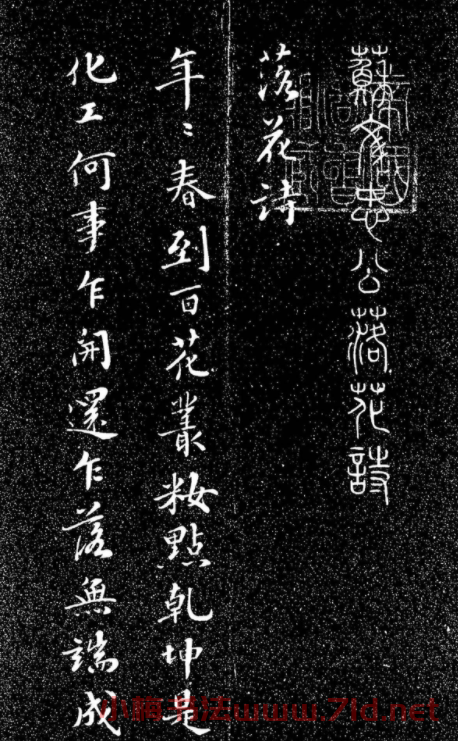 蘇文忠公落花詩
落花詩
年〻春到百花叢粧點乾坤是
化工何事乍開還乍落無端成
小鵝书法www.7ld.net